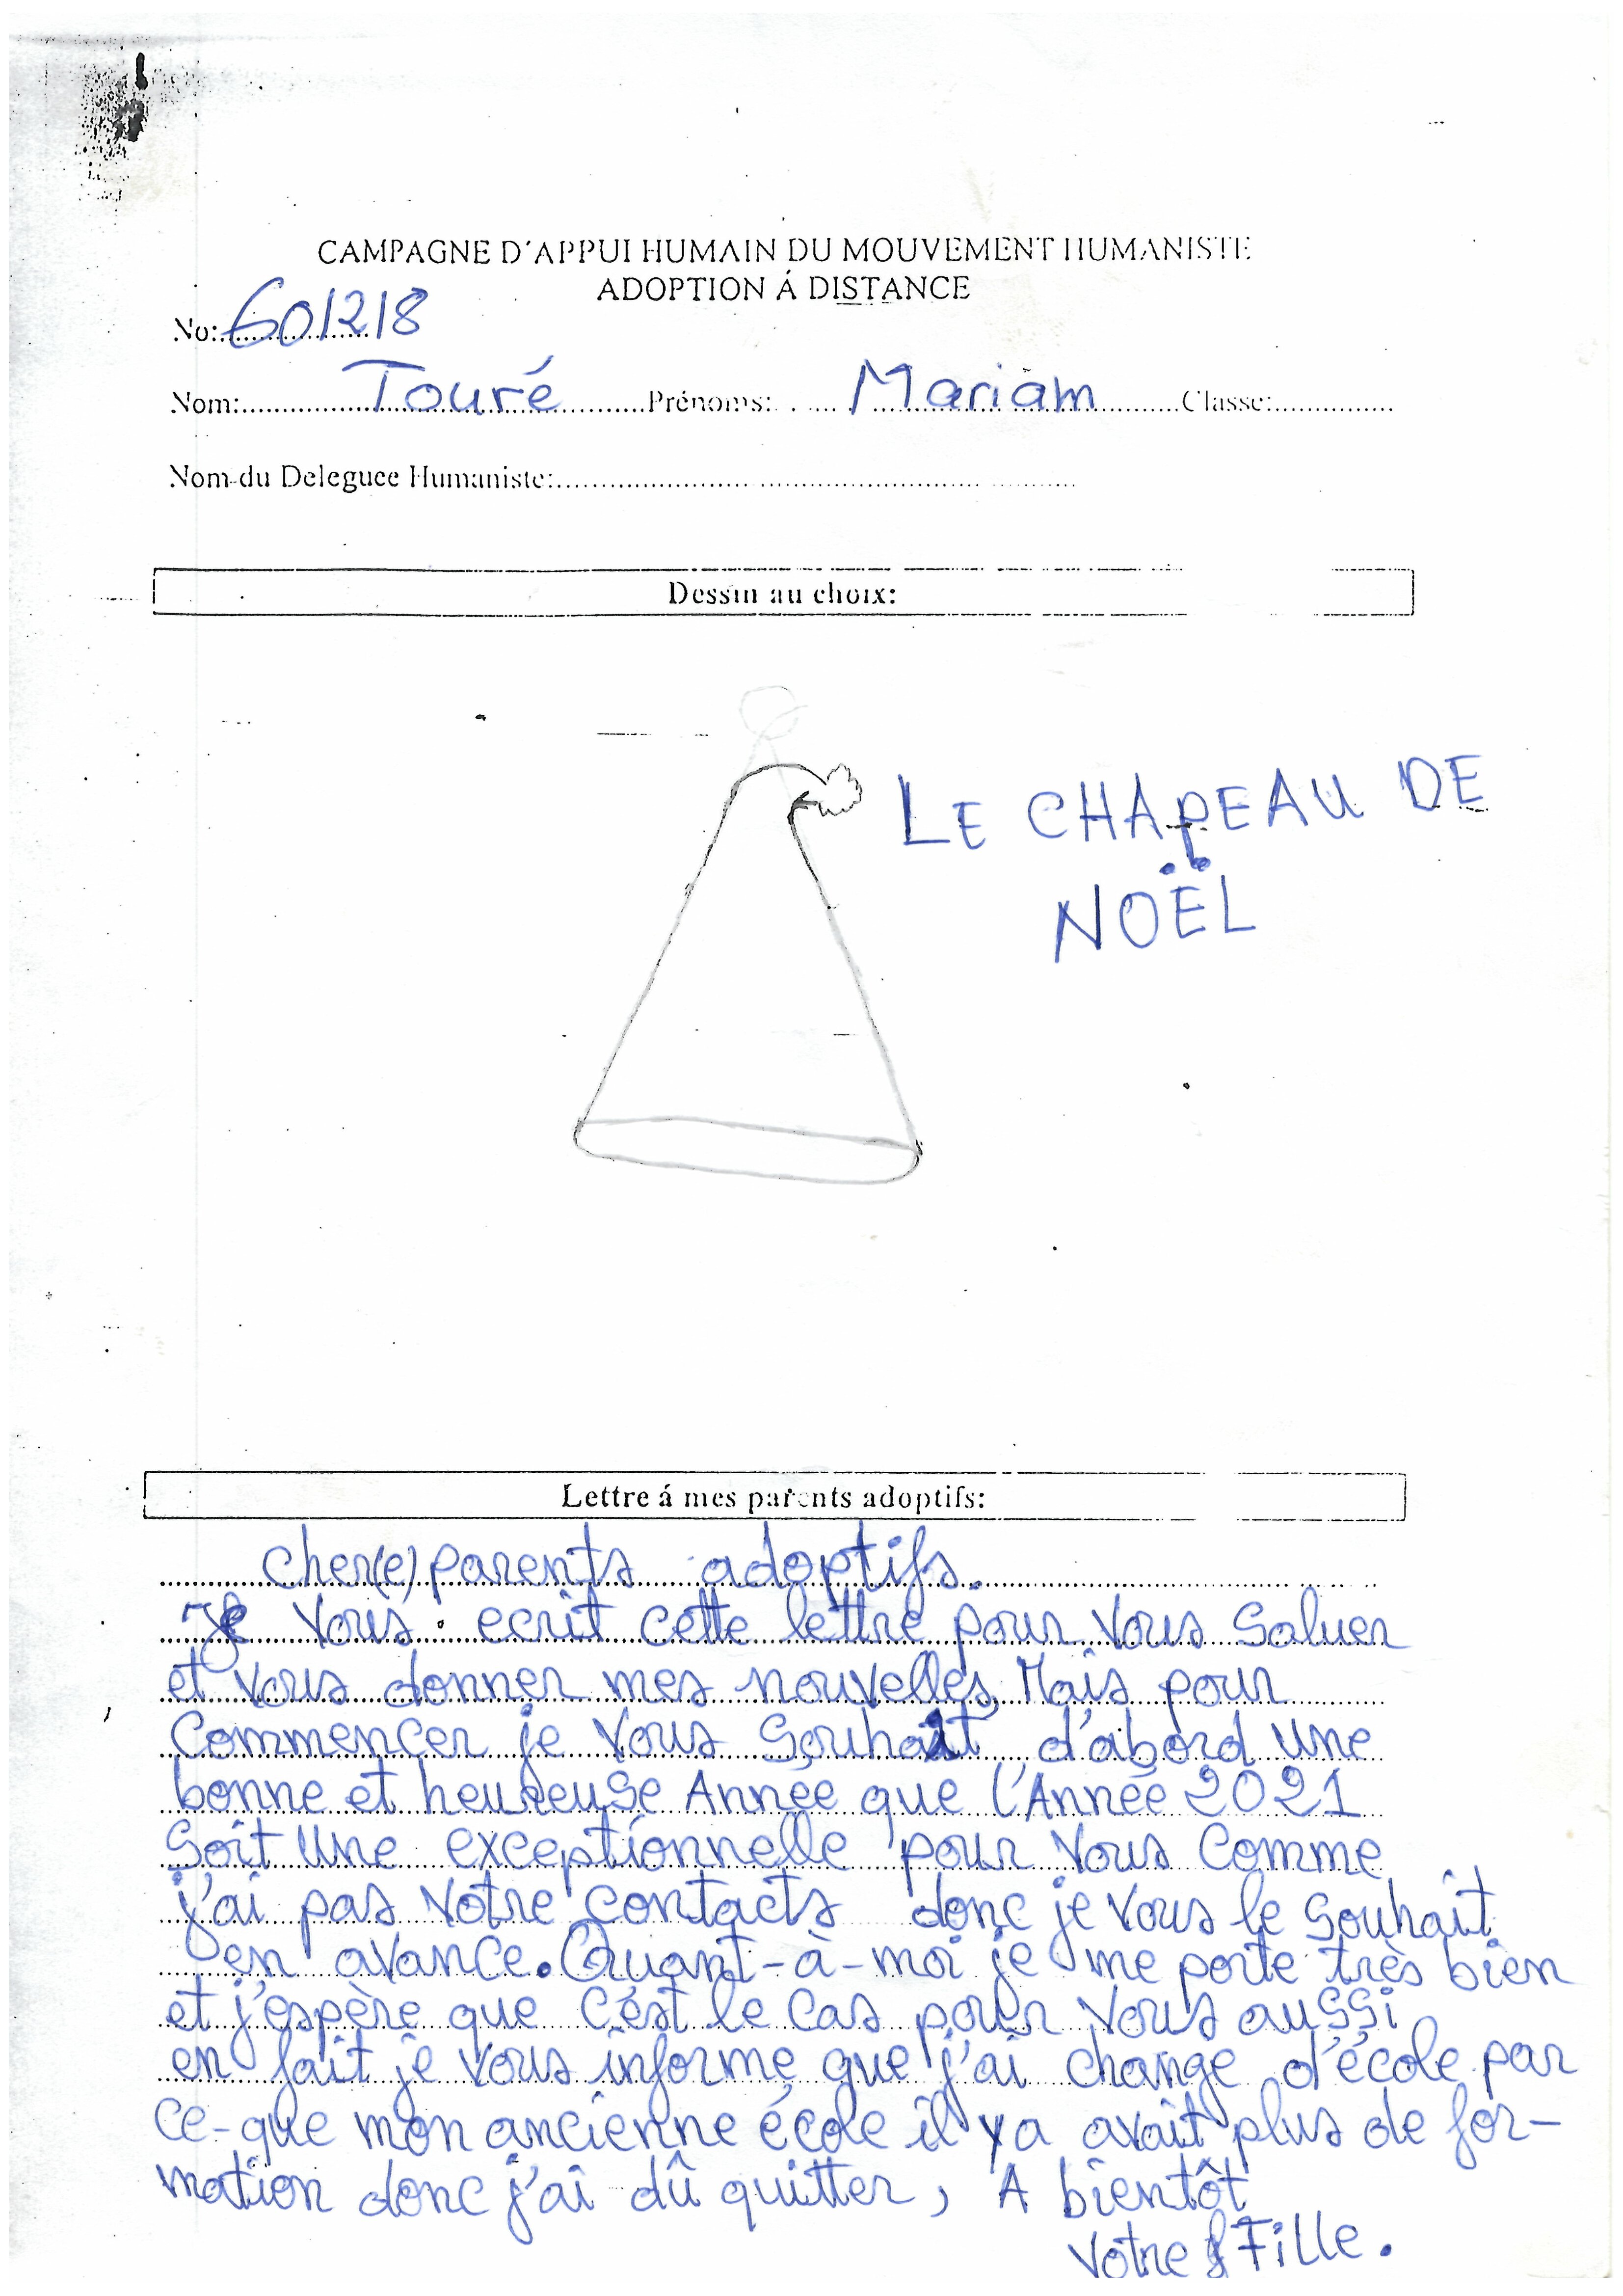 CAMPAGNE D'APPUI HUMAIN DU MOUVEMENT HUMANISTE
ADOPTION Á DISTANCE
No: 601218
Nom: Touré Prénoms: Mariam Classe:
Nom du Deleguee Humaniste:
Dessin au choix:
LE CHAPEAU DE
NOËL
Lettre á mes parents adoptifs:
cher(e) parents adoptifs.
Je vous ecrit cette lettre pour vous saluer
et vous donner mes nouvelles, Mais pour
commencer je vous souhait d'abord une
bonne et heureuse Année que l'Année 2021
soit une exceptionnelle pour vous comme
j'ai pas votre contacts donc je vous le souhait
en avance. Quant-à-moi je me porte très bien
et j'espère que c'est le cas pour vous aussi
en fait je vous informe que j'ai change d'école par
ce-que mon ancienne école il ya avait plus de for-
mation donc j'ai dû quitter, A bientôt
votre Fille.